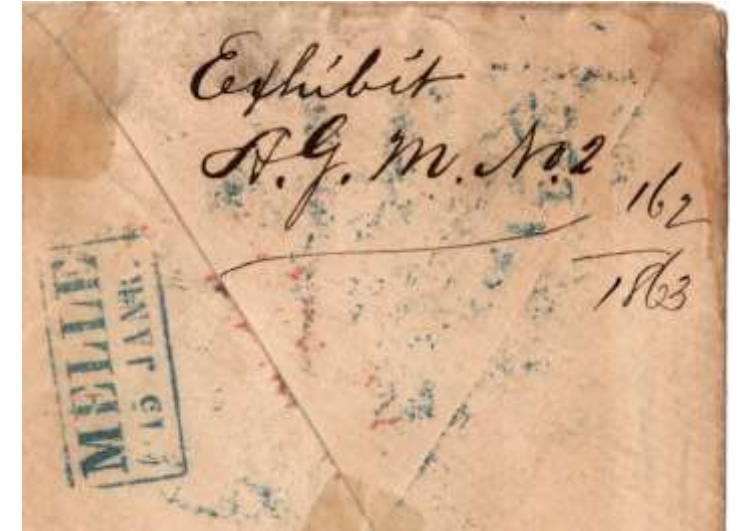 Exhibit
A. G. M. No. 2
162
1863
MELLE
19 JANR.